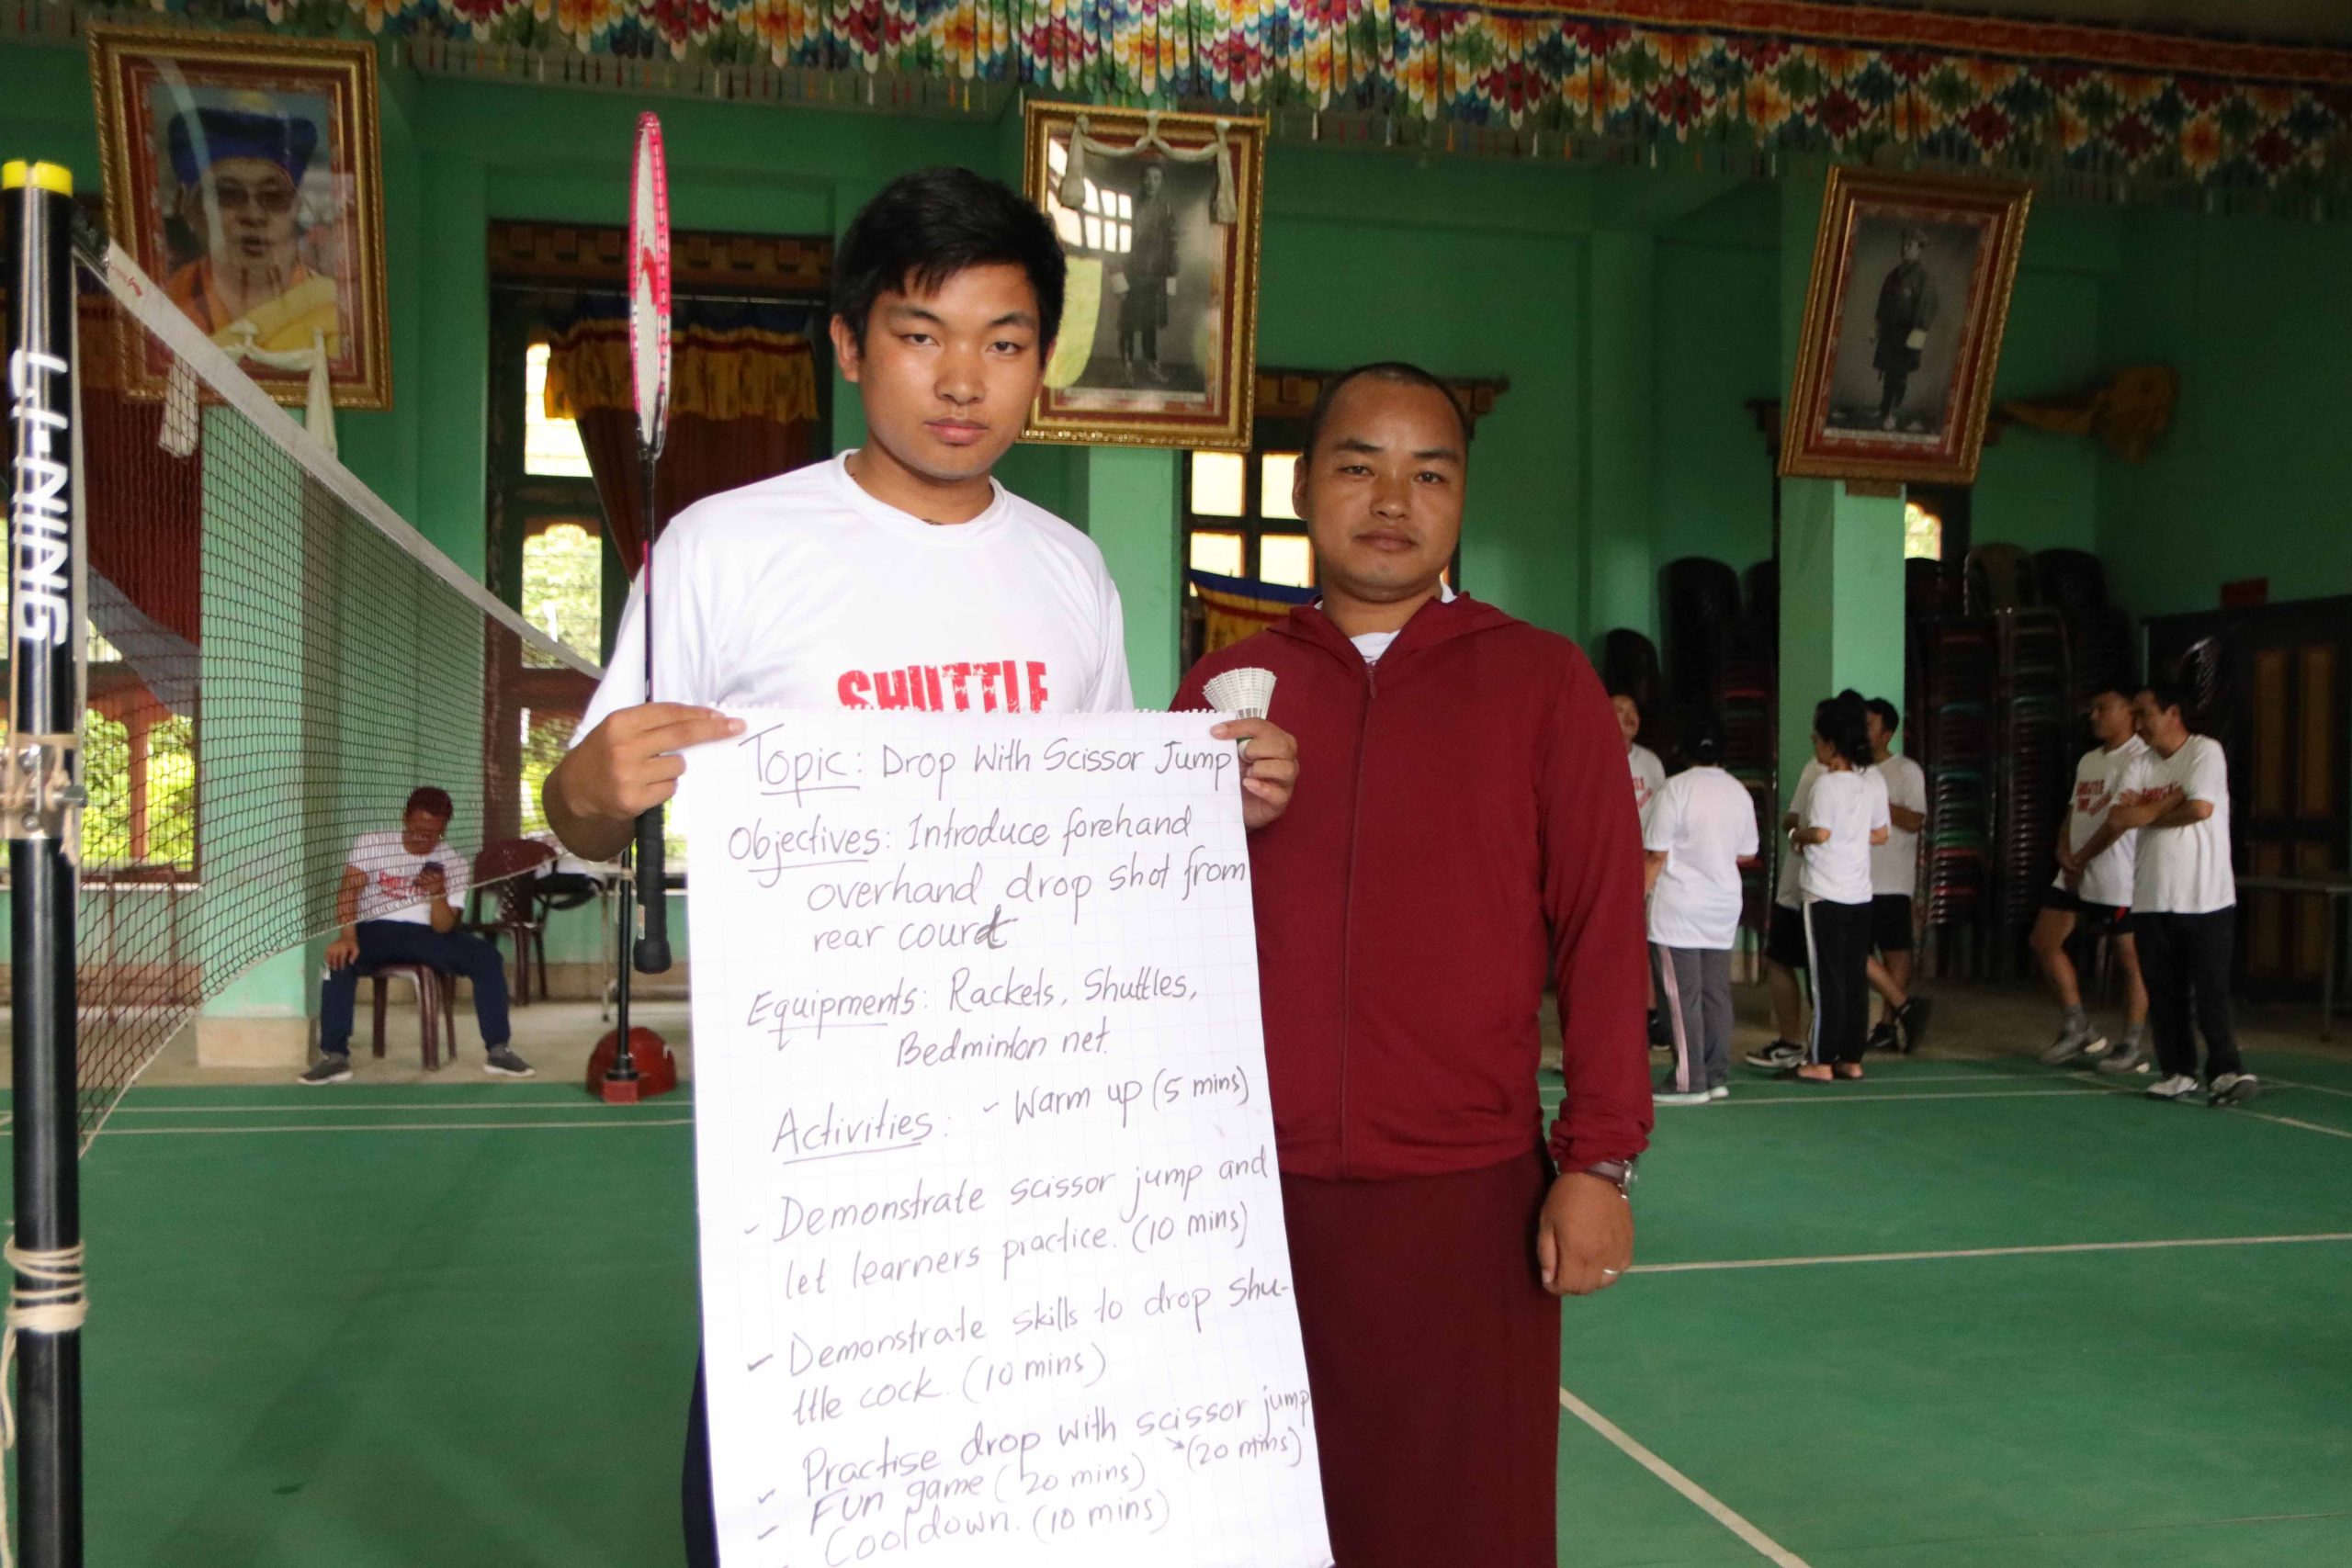 LI-NING
SHUTTLE
Topic: Drop With Scissor Jump
Objectives: Introduce forehand
overhand drop shot from
rear court
Equipments: Rackets, Shuttles,
Bedminton net.
Activities: - Warm up (5 mins)
- Demonstrate scissor jump and
let learners practice. (10 mins)
- Demonstrate skills to drop shu-
ttle cock. (10 mins)
- Practise drop with scissor jump
(20 mins)
- Fun game (20 mins)
- Cool down. (10 mins)